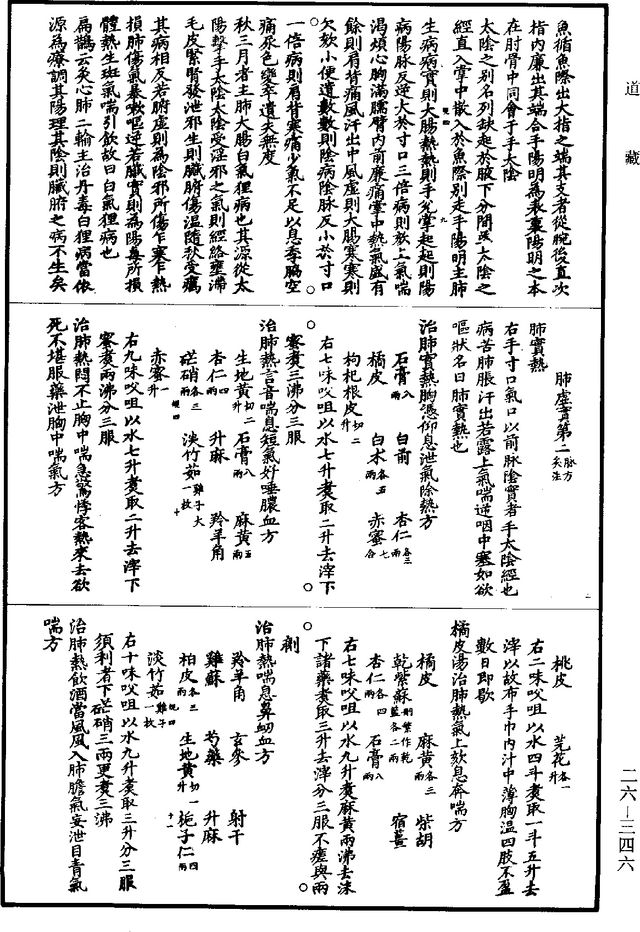 道藏
魚循魚際出大指之端其支者從腕後直次
指內廉出其端合手陽明為表裏陽明之本
在肘骨中同會于手太陰
太陰之別名列缺起於腋下分間或太陰之
經直入掌中散入於魚際別走手陽明主肺
生病病實則大腸熱熱則手銳掌起起則陽
病陽脉反逆大於寸口三倍病則欬上氣喘
渴煩心胸滿臑臂內前廉痛掌中熱氣盛有
餘則肩背痛風汗出中風虛則大腸寒寒則
欠欬小便遺數數則陰病陰脉反小於寸口
一倍病則肩背寒痛少氣不足以息季脇空
痛尿色變卒遺失無度
秋三月者主肺大腸白氣狸病也其源從太
陽擊手太陰太陰受淫邪之氣則經絡壅滯
毛皮緊竪發泄邪生則臟腑傷溫隨狀受癘
其病相反若腑虛則為陰邪所傷乍寒乍熱
損肺傷氣暴嗽嘔逆若臟實則為陽毒所損
體熱生斑氣喘引飲故曰白氣狸病也
扁鵲云灸心肺二輸主治丹毒白狸病當依
源為療調其陽理其陰則臟腑之病不生矣
肺虛實第二 脉方灸法
肺實熱
右手寸口氣口以前脉陰實者手太陰經也
病苦肺脹汗出若露上氣喘逆咽中塞如欲
嘔狀名曰肺實熱也
治肺實熱胸憑仰息泄氣除熱方
石膏八兩 白前 杏仁各三兩
橘皮 白术各五兩 赤蜜七合
枸杞根皮切二升
右七味㕮咀以水七升煑取二升去滓下
蜜煑三沸分三服
治肺熱言音喘息短氣好唾膿血方
生地黄切二升 石膏八兩 麻黄五兩
杏仁四兩 升麻 羚羊角
芒硝各三兩 淡竹茹雞子大一枚
赤蜜一升
右九味㕮咀以水七升煑取二升去滓下
蜜煑兩沸分三服
治肺熱悶不止胸中喘急驚悸客熱來去欲
死不堪服藥泄胸中喘氣方
桃皮 芫花各一升
右二味㕮咀以水四斗煑取一斗五升去
滓以故布手巾內汁中薄胸温四肢不盈
數日即歇
橘皮湯治肺熱氣上欬息奔喘方
橘皮 麻黄各三兩 柴胡
乾紫蘇 宿薑
杏仁各四兩 石膏八兩
右七味㕮咀以水九升煑麻黄兩沸去沫
下諸藥煑取三升去滓分三服不瘥與兩
劑
治肺熱喘息鼻衂血方
羚羊角 玄參 射干
雞蘇 芍藥 升麻
柏皮各三兩 生地黄切一升 梔子仁四兩
淡竹茹雞子一枚
右十味㕮咀以水九升煑取三升分三服
須利者下芒硝三兩更煑三沸
治肺熱飲酒當風風入肺膽氣妄泄目青氣
喘方
二六－三四六